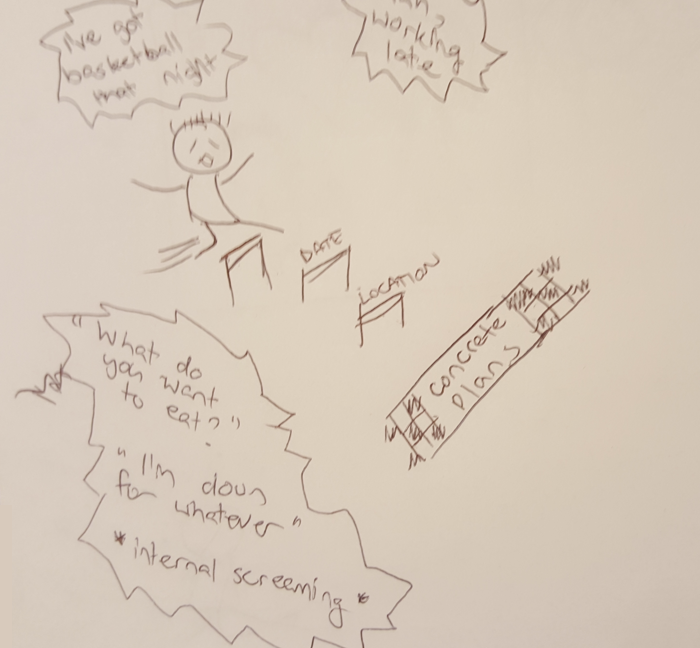 I've got
basketball
that night
working
late
DATE
LOCATION
concrete
plans
"What do
you want
to eat?"
"I'm down
for whatever"
*internal screaming*